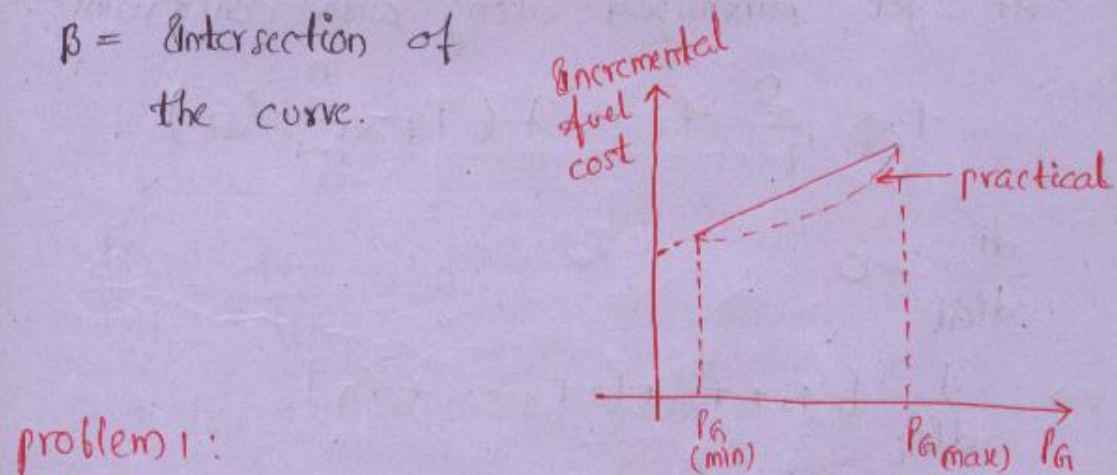 β = Intersection of
the curve.
Incremental
fuel
cost
practical
PG
(min)
PG(max)
PG
problem 1: